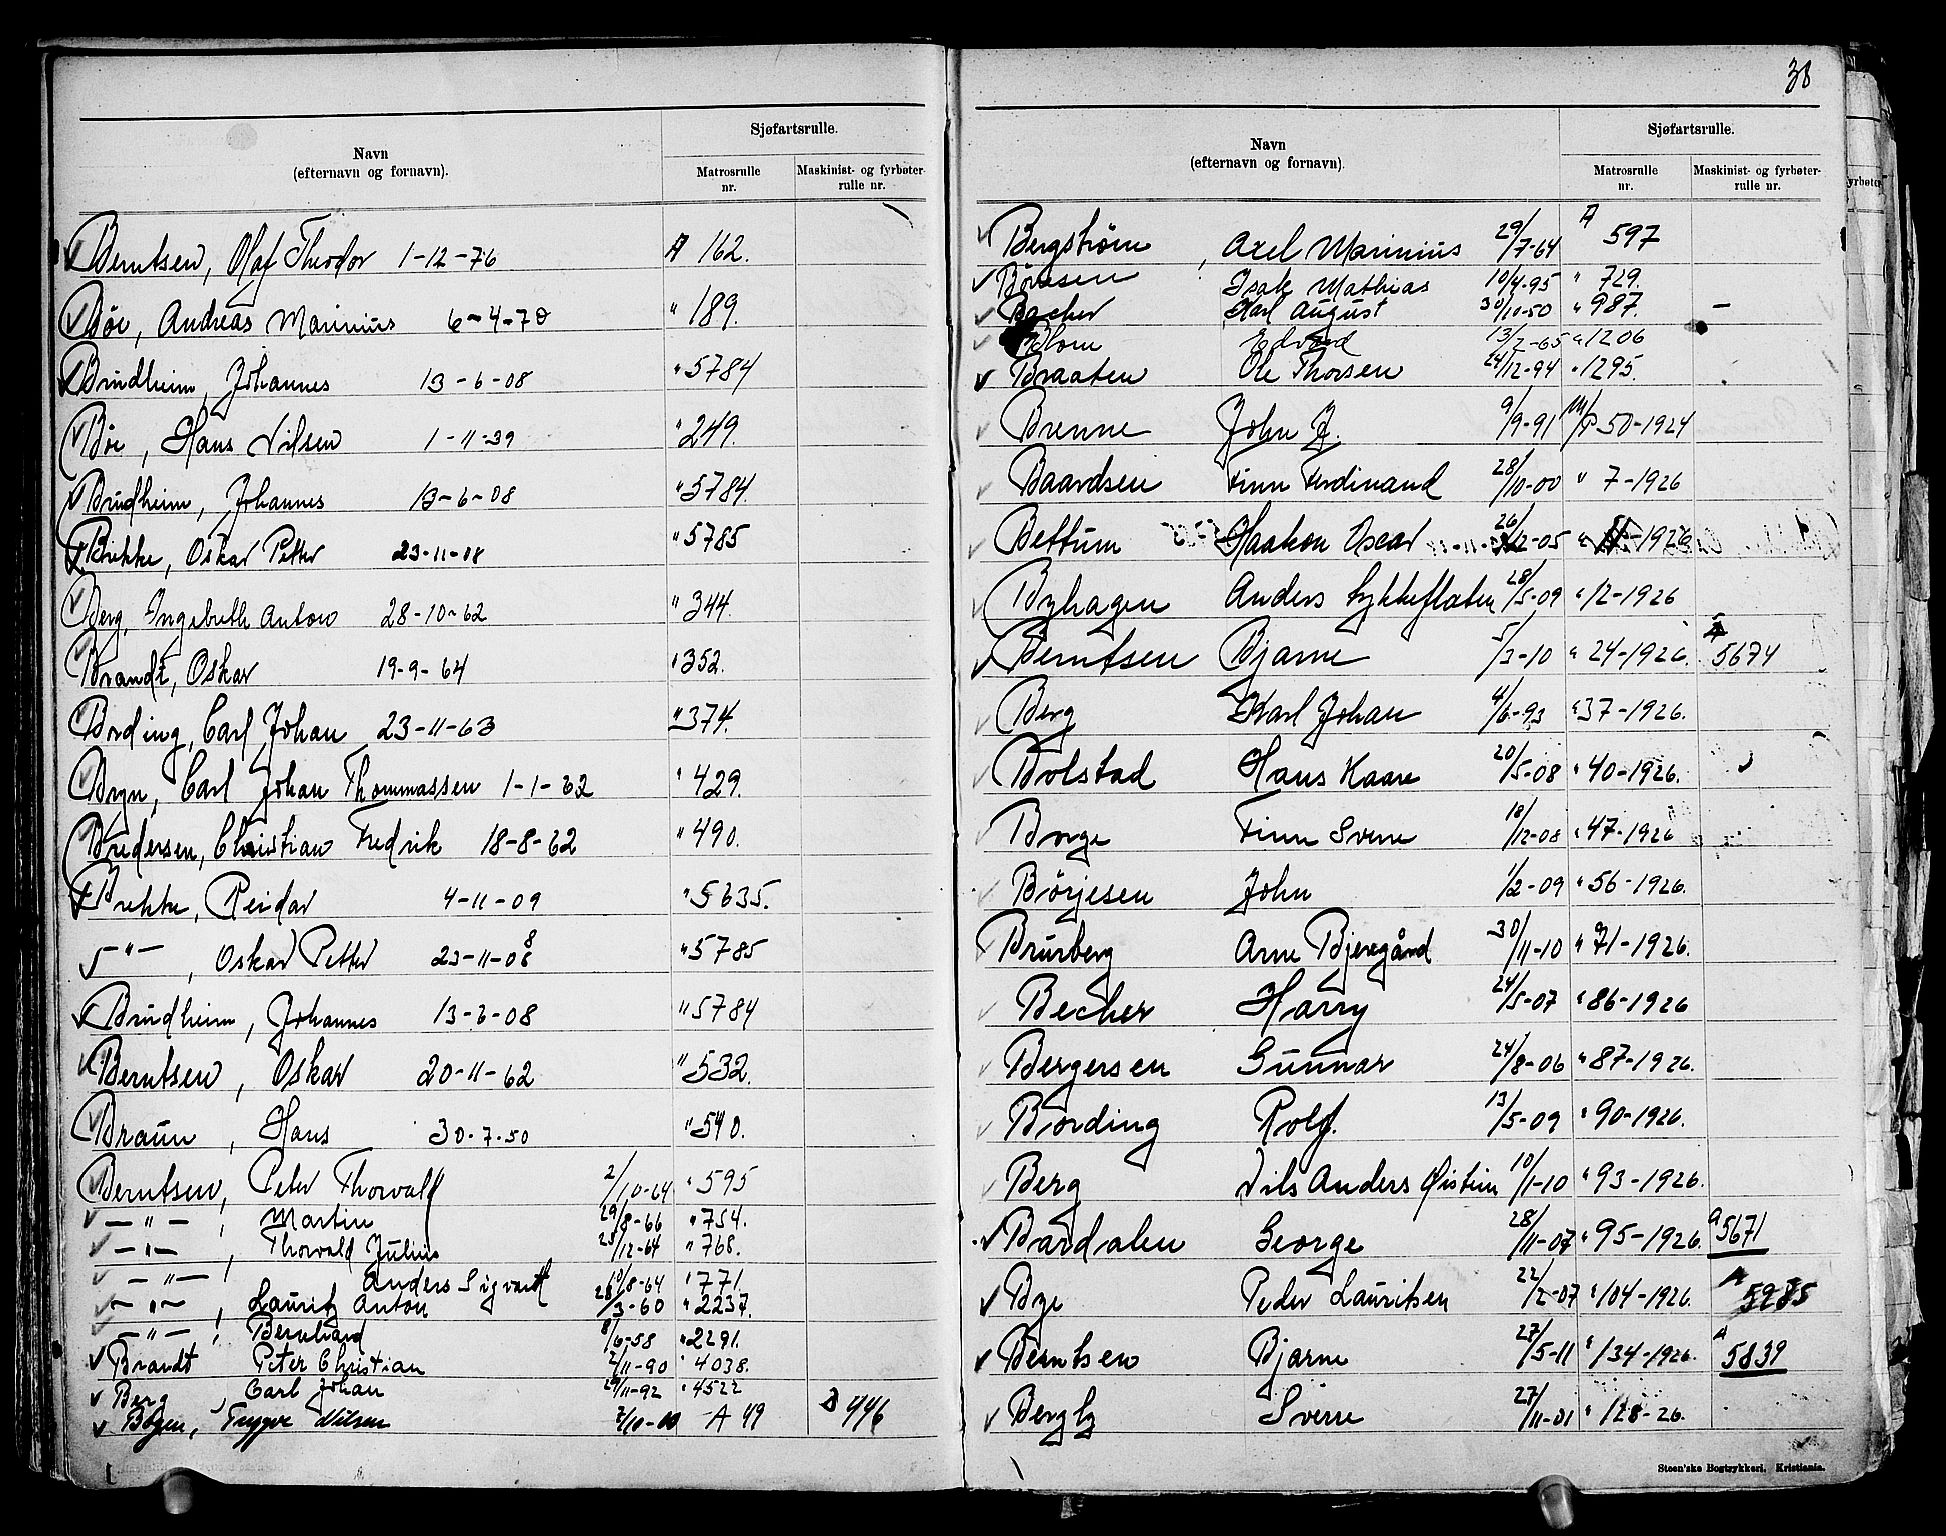 Navn
(efternavn og fornavn).
Sjøfartsrulle.
Matrosrulle
nr.
Maskinist- og fyrbøter-
rulle nr.
Berntsen, Olaf Theodor 1-12-76 A 162.
Bøe, Andreas Marinius 6-4-70 " 189.
Brudheim, Johannes 13-6-08 " 5784
Bøe, Hans Nilsen 1-11-39 " 249.
Brudheim, Johannes 13-6-08 " 5784.
Brekke, Oskar Petter 23-11-08 " 5785
Berg, Ingebreth Anton 28-10-62 " 344.
Brandt, Oskar 19-9-64 " 352.
Bording, Carl Johan 23-11-63 " 374.
Bryn, Carl Johan Thommassen 1-1-62 " 429.
Bredersen, Christian Fredrik 18-8-62 " 490.
Brekke, Reidar 4-11-09 " 5635.
-"-, Oskar Petter 23-11-08 8 " 5785
Brudheim, Johannes 13-6-08 " 5784
Berntsen, Oskar 20-11-62 " 532.
Braun, Hans 30.7.50 " 540.
Berntsen, Peter Thorvald 2/10-64 " 595
-"-, Martin 29/8-66 " 754.
-"-, Thorvald Julius 25/12-64 " 768.
-"-, Anders Sigvardt 10/8-64 " 771.
-"-, Lauritz Anton 28/3-60 " 2237.
-"-, Bernhard 8/6-58 " 2291.
Brandt Peter Christian 2/11-90 " 4038.
Berg, Carl Johan 29/11-92 " 4522
Bøyen, Trygve Nilsen 7/10-00 A 49 B 446
38
Navn
(efternavn og fornavn).
Sjøfartsrulle.
Matrosrulle
nr.
Maskinist- og fyrbøter-
rulle nr.
Bergstrøm, Axel Marinius 29/7-64 A 597
Børresen Isak Mathias 10/4-95 " 729.
Bacher Karl August 30/10-50 " 987. -
Blom Edvard 13/2-65 " 1206
Braaten Ole Thorsen 24/12-94 " 1295.
Brenne John J. 9/9-91 50-1924
Baardsen Finn Ferdinand 28/10-00 " 7-1926
Bettum Haakon Oscar 26/12-05 " 11-1926
Byhagen Anders Lykkefloten 28/5-09 " 12-1926
Berntsen Bjarne 5/3-10 " 24-1926. A 5674
Berg Karl Johan 4/6-93 " 37-1926.
Bolstad Hans Kaare 20/5-08 " 40-1926.
Borge Finn Sverre 18/12-08 " 47-1926
Børjesen John 1/2-09 " 56-1926.
Brurberg Arne Bjerregård 30/11-10 " 71-1926.
Becher Harry 24/5-07 " 86-1926
Bergersen Gunnar 24/8-06 " 87-1926.
Bording Rolf. 13/5-09 " 90-1926.
Berg Nils Anders Øistein 10/1-10 " 93-1926.
Bardalen George 28/11-07 " 95-1926. A 5671
Bye Peder Lauritsen 22/2-07 " 104-1926. A 5985
Berntsen Bjarne 27/5-11 " 134-1926. A 5839
Bergly Sverre 27/11-01 " 128-26.
Steen'ske Bogtrykkeri, Kristiania.